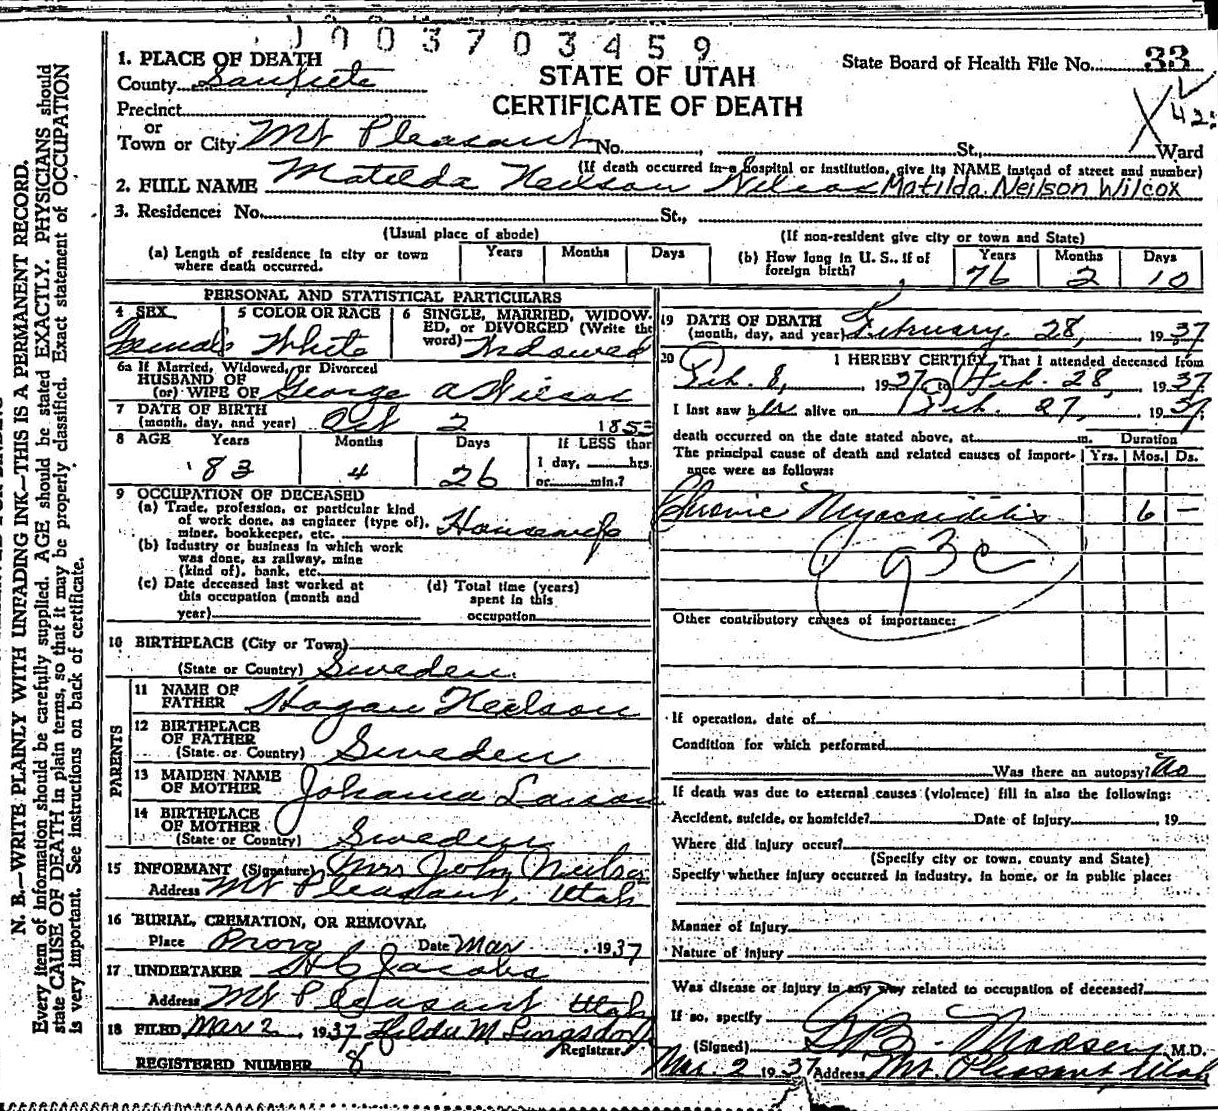 1003703459
1. PLACE OF DEATH
County Sanpete
STATE OF UTAH
CERTIFICATE OF DEATH
State Board of Health File No. 33
Precinct
or
Town or City Mt Pleasant No. St., Ward
(If death occurred in a hospital or institution, give its NAME instead of street and number)
2. FULL NAME Matilda Neilson Wilcox Matilda Neilson Wilcox
3. Residence: No. St.,
(Usual place of abode) (If non-resident give city or town and State)
(a) Length of residence in city or town where death occurred. Years Months Days
(b) How long in U. S., if of foreign birth? Years 76 Months 2 Days 10
PERSONAL AND STATISTICAL PARTICULARS
4 SEX Female
5 COLOR OR RACE White
6 SINGLE, MARRIED, WIDOWED, or DIVORCED (Write the word) Widowed
6a If Married, Widowed, or Divorced
HUSBAND OF
(or) WIFE OF George A Wilcox
7 DATE OF BIRTH
(month, day, and year) Oct 2 185
8 AGE Years 83 Months 4 Days 26 If LESS than 1 day, hrs. or min.?
9 OCCUPATION OF DECEASED
(a) Trade, profession, or particular kind
of work done, as engineer (type of),
miner, bookkeeper, etc. Housewife
(b) Industry or business in which work
was done, as railway, mine
(kind of), bank, etc.
(c) Date deceased last worked at
this occupation (month and
year)
(d) Total time (years)
spent in this
occupation
10 BIRTHPLACE (City or Town)
(State or Country) Sweden
PARENTS
11 NAME OF
FATHER Hogan Neilson
12 BIRTHPLACE
OF FATHER
(State or Country) Sweden
13 MAIDEN NAME
OF MOTHER Johanna Larson
14 BIRTHPLACE
OF MOTHER
(State or Country) Sweden
15 INFORMANT (Signature) Mrs John Neilson
Address Mt Pleasant, Utah
16 BURIAL, CREMATION, OR REMOVAL
Place Provo Date Mar 1937
17 UNDERTAKER Jacobs
Address Mt Pleasant Utah
18 FILED Mar 2, 1937 Hilda M Lingsdorf
Registrar
REGISTERED NUMBER 8
19 DATE OF DEATH
(month, day, and year) February 28, 1937
20 I HEREBY CERTIFY, That I attended deceased from
Feb. 8, 1937 to Feb. 28, 1937
I last saw her alive on Feb. 27, 1937
death occurred on the date stated above, at m.
The principal cause of death and related causes of importance were as follows:
Duration
Yrs. Mos. Ds.
Chronic Myocarditis 6 –
93c
Other contributory causes of importance:
If operation, date of
Condition for which performed
Was there an autopsy? No
If death was due to external causes (violence) fill in also the following:
Accident, suicide, or homicide? Date of injury 19
Where did injury occur?
(Specify city or town, county and State)
Specify whether injury occurred in industry, in home, or in public place:
Manner of injury
Nature of injury
Was disease or injury in any way related to occupation of deceased?
If so, specify
(Signed) Madsen, M.D.
Mar. 2 1937 Address Mt. Pleasant, Utah
N. B.—WRITE PLAINLY WITH UNFADING INK—THIS IS A PERMANENT RECORD.
Every item of information should be carefully supplied. AGE should be stated EXACTLY. PHYSICIANS should
state CAUSE OF DEATH in plain terms, so that it may be properly classified. Exact statement of OCCUPATION
is very important. See instructions on back of certificate.